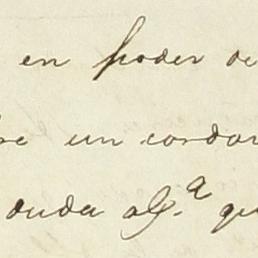 en poder de
un cordon
duda alg.ª qu